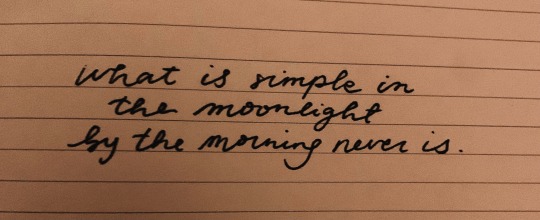 what is simple in
the moonlight
by the morning never is.